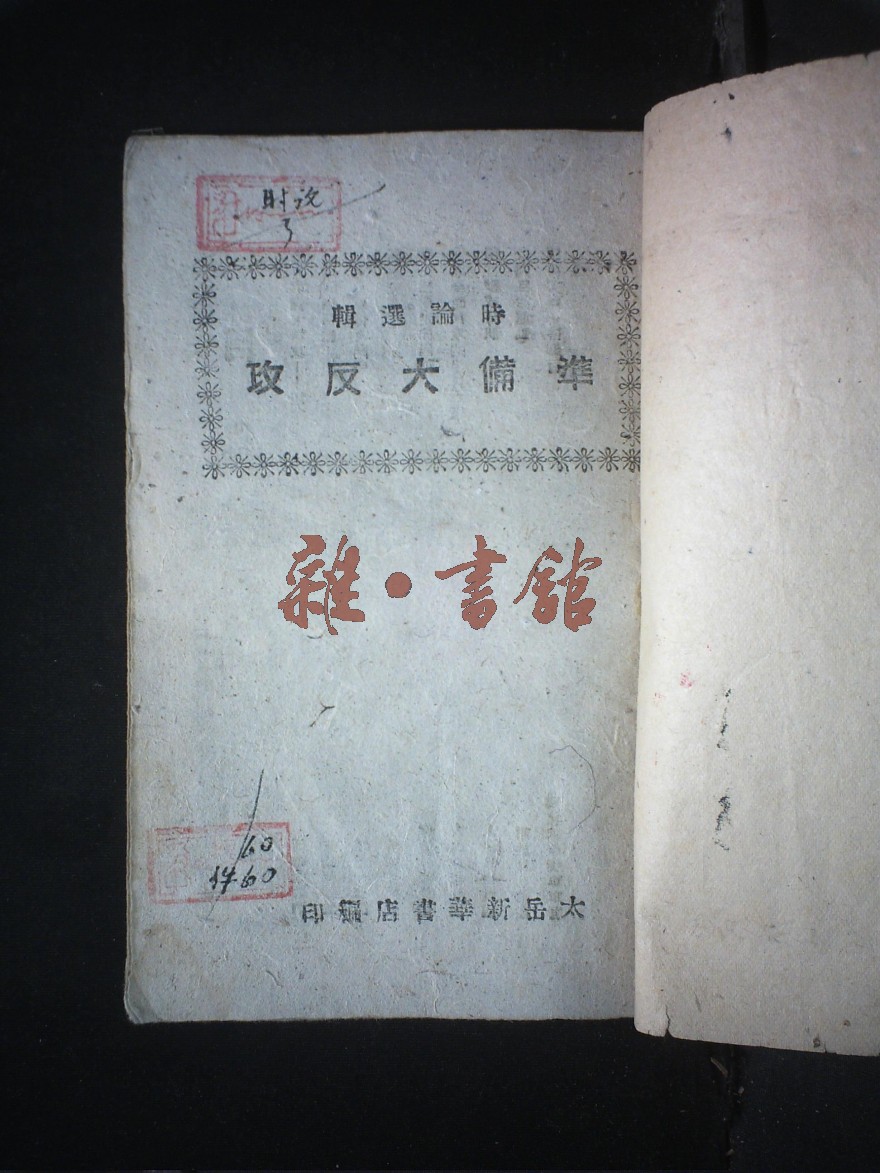 時論選輯
準備大反攻
雜·書館
60
太岳新華書店印